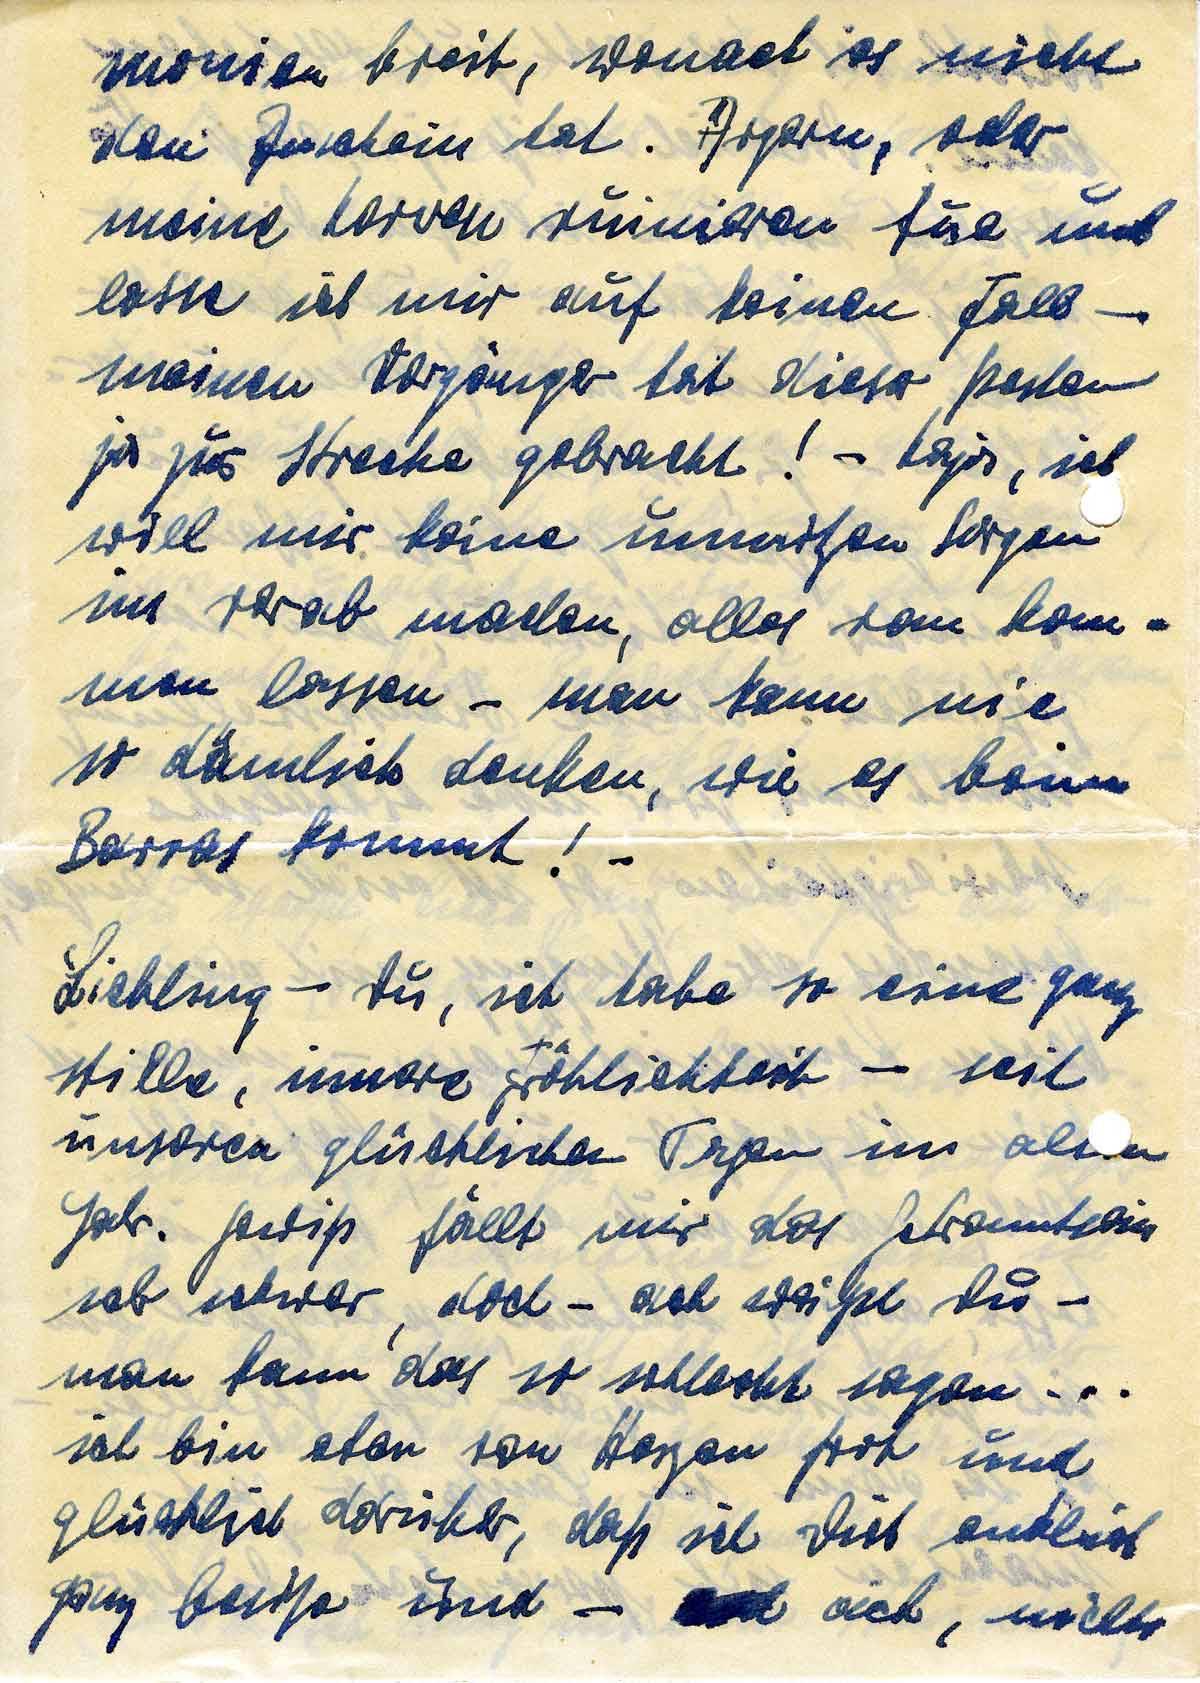 monien breit, wonach es nicht
den Anschein hat. Ärgern, oder
meine Nerven ruinieren tue und
lasse ich mir auf keinen Fall –
meinen Vorgänger hat dieser Posten
ja zur Strecke gebracht! – Naja, ich
will mir keine unnützen Sorgen
im vorab machen, alles ran kom-
men lassen – man kann nie
so dämlich denken, wie es beim
Barras kommt! –
Liebling – Du, ich habe so eine ganz
stille, innere Fröhlichkeit – seit
unseren glücklichen Tagen im alten
Jahr. Gewiß fällt mir das Getrenntsein
sehr schwer, doch – ach weißt Du –
man kann das so schlecht sagen ...
ich bin eben von Herzen froh und
glücklich darüber, daß ich Dich endlich
ganz besitze und – ach, nichts